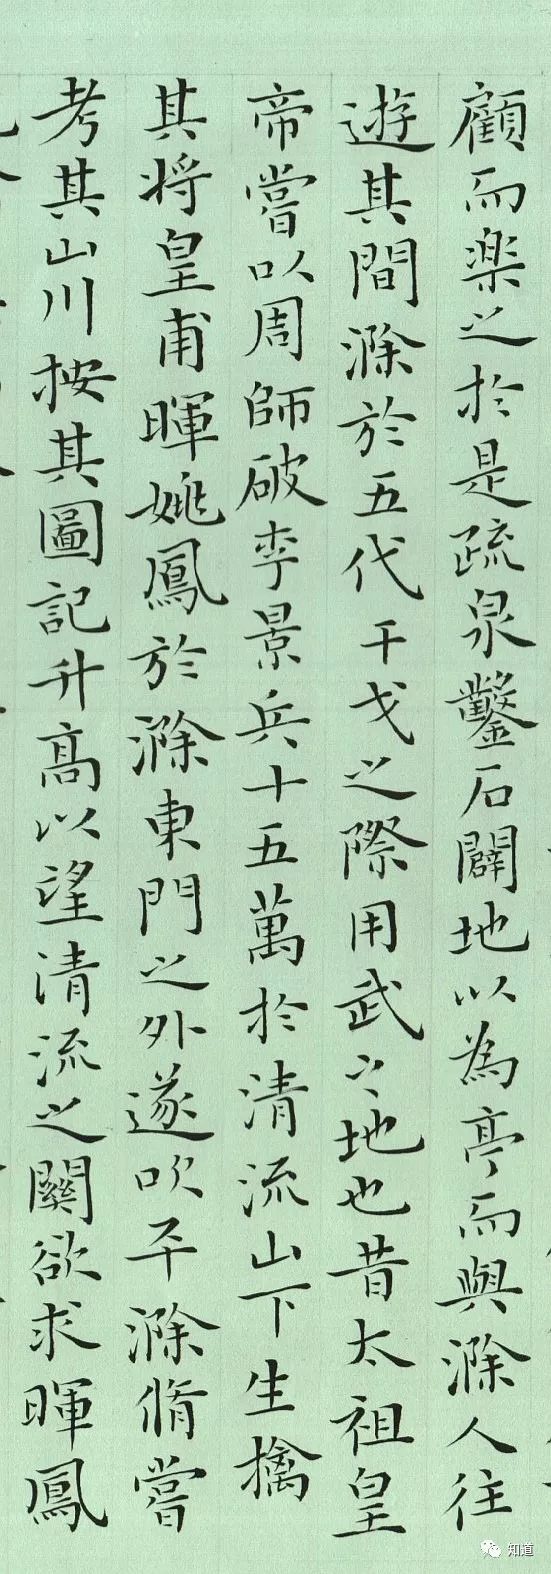 顧而楽之於是疏泉鑿石闢地以為亭而與滁人往
遊其間滁於五代干戈之際用武之地也昔太祖皇
帝嘗以周師破李景兵十五萬於清流山下生擒
其将皇甫暉姚鳳於滁東門之外遂以平滁脩嘗
考其山川按其圖記升髙以望清流之關欲求暉鳳
知道